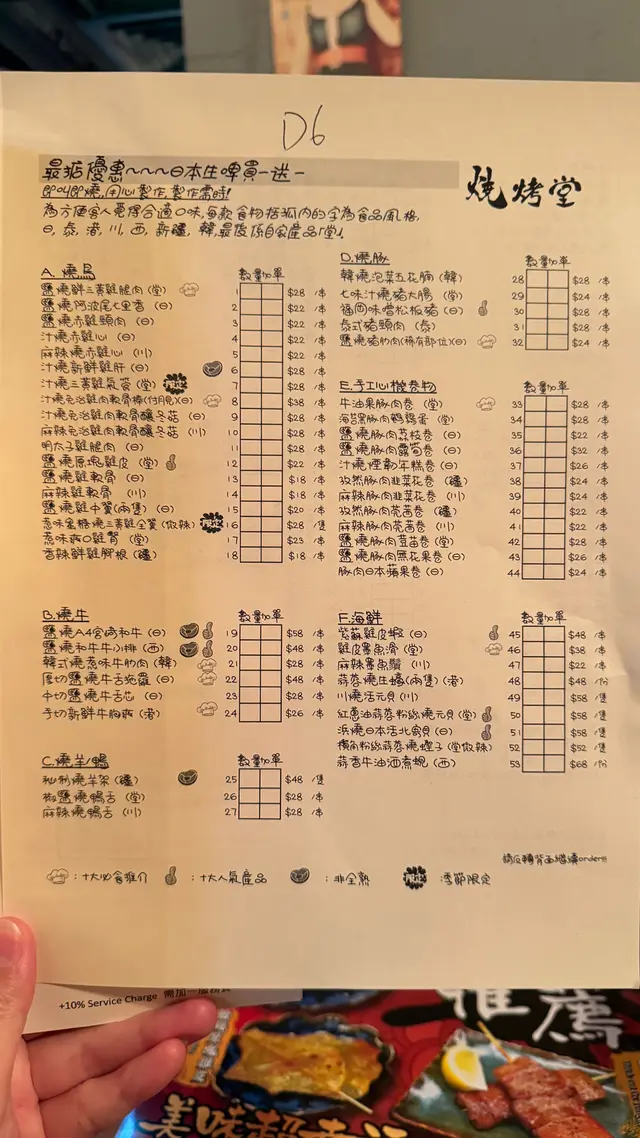 D6
最掂優惠~~~日本生啤買一送一
燒烤堂
即叫即燒,用心製作,製作需時!
為方便客人覓得合適口味,每款食物括弧內的字為食品風格,
日,泰,港,川,西,新疆,韓,最後係自家產品「堂」.
A. 燒鳥 數量加單
鹽燒鮮三黃雞腿肉 (堂) 1 $28 /串
鹽燒阿波尾七里香 (日) 2 $22 /串
鹽燒赤雞頸肉 (日) 3 $22 /串
汁燒赤雞心 (日) 4 $22 /串
麻辣燒赤雞心 (川) 5 $22 /串
汁燒新鮮雞肝 (日) 6 $28 /串
汁燒三黃雞氣管 (堂) 限定 7 $28 /串
汁燒免治雞肉軟骨棒(付月見)(日) 8 $38 /串
汁燒免治雞肉軟骨釀冬菇 (日) 9 $28 /串
麻辣免治雞肉軟骨釀冬菇 (川) 10 $28 /串
明太子雞腿肉 (日) 11 $28 /串
鹽燒原塊雞皮 (堂) 12 $22 /串
鹽燒雞軟骨 (日) 13 $18 /串
麻辣雞軟骨 (川) 14 $18 /串
鹽燒雞中翼(兩隻) (日) 15 $20 /串
惹味蜜糖燒三黃雞全翼 (微辣) 限定 16 $28 /隻
惹味爽口雞腎 (堂) 17 $23 /串
香辣鮮雞腳根 (疆) 18 $18 /串
B. 燒牛 數量加單
鹽燒A4宮崎和牛 (日) 19 $58 /串
鹽燒和牛牛小排 (西) 20 $48 /串
韓式燒惹味牛肋肉 (韓) 21 $28 /串
厚切鹽燒牛舌 (日) 22 $48 /串
中切鹽燒牛舌芯 (日) 23 $28 /串
手切新鮮牛胸爽 (港) 24 $26 /串
C. 燒羊鴨 數量加單
秘制燒羊架 (疆) 25 $48 /隻
椒鹽燒鴨舌 (堂) 26 $28 /串
麻辣燒鴨舌 (川) 27 $28 /串
D. 燒豚 數量加單
韓燒泡菜五花腩 (韓) 28 $28 /串
七味汁燒豬大腸 (堂) 29 $24 /串
福岡味噌松板豬 (日) 30 $28 /串
泰式豬頸肉 (泰) 31 $28 /串
鹽燒豬肋肉(稀有部位)(日) 32 $24 /串
E. 手工心機卷物 數量加單
牛油果豚肉卷 (堂) 33 $28 /串
海苔黑豚肉鵪鶉蛋 (堂) 34 $28 /串
鹽燒豚肉荔枝卷 (日) 35 $22 /串
鹽燒豚肉露筍卷 (日) 36 $32 /串
汁燒煙肉年糕卷 (日) 37 $26 /串
孜然豚肉韭菜花卷 (疆) 38 $24 /串
麻辣豚肉韭菜花卷 (川) 39 $24 /串
孜然豚肉芫茜卷 (疆) 40 $22 /串
麻辣豚肉芫茜卷 (川) 41 $22 /串
鹽燒豚肉苣苗卷 (堂) 42 $28 /串
鹽燒豚肉無花果卷 (日) 43 $26 /串
豚肉日本蘋果卷 (日) 44 $24 /串
F. 海鮮 數量加單
紫蘇雞皮蝦 (日) 45 $48 /串
雞皮墨魚滑 (堂) 46 $38 /串
麻辣墨魚鬚 (川) 47 $22 /串
蒜蓉燒生蠔(兩隻) (港) 48 $48 /份
川燒活元貝 (川) 49 $58 /隻
紅蔥油蒜蓉粉絲燒元貝 (堂) 50 $58 /隻
浜燒日本活北寄貝 (日) 51 $58 /隻
粉絲蒜蓉燒蟶子 (堂微辣) 52 $52 /隻
蒜香牛油酒煮蜆 (西) 53 $68 /份
請反轉背面繼續order!!
:十大必食推介 :十大人氣產品 :非全熟 限定 :季節限定
+10% Service Charge 需加一服務費
推薦
美味